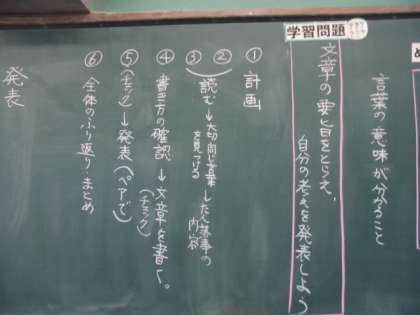 言葉の意味が分かること
学習問題
文章の要旨をとらえ、
自分の考えを発表しよう
① 計画
②
③
読む→大切、同じ言葉
を見つける
したん落、事の
内容
④ 書き方の確認→文章を書く。
(チェック)
⑤ →発表(ペアで)
⑥ 全体のふり返り・まとめ
発表